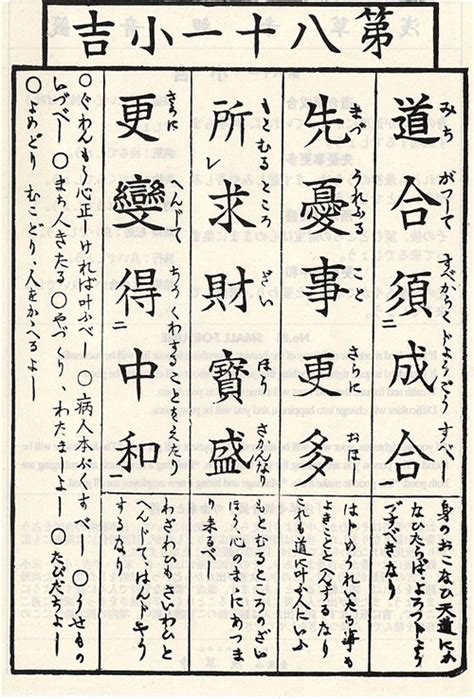 第八十一小吉
道合須成合
みち がつして
先憂事更多
まづ うれふる こと さらに おほし
所求財寶盛
もとむるところ ざい ほう さかんなり
更變得中和
さらに へんじて ちうくわすることをえたり
身のおこなひ天道にか
なひたらばよろづじよう
よきことへんずるなり
これも道に叶ふ人にいふ
もとむるところのざい
ほう心のまゝにあつま
り来るべし
わざはひもさいわひと
へんじて、はんじやう
するなり
○ぐわんもう心正しければ叶ふべし ○病人本ぶくす ○うせもの
いづべし ○まち人きたる ○やづくり、わたましよし ○たびだちよし
○よめどり むことり、人をかゝへるよし